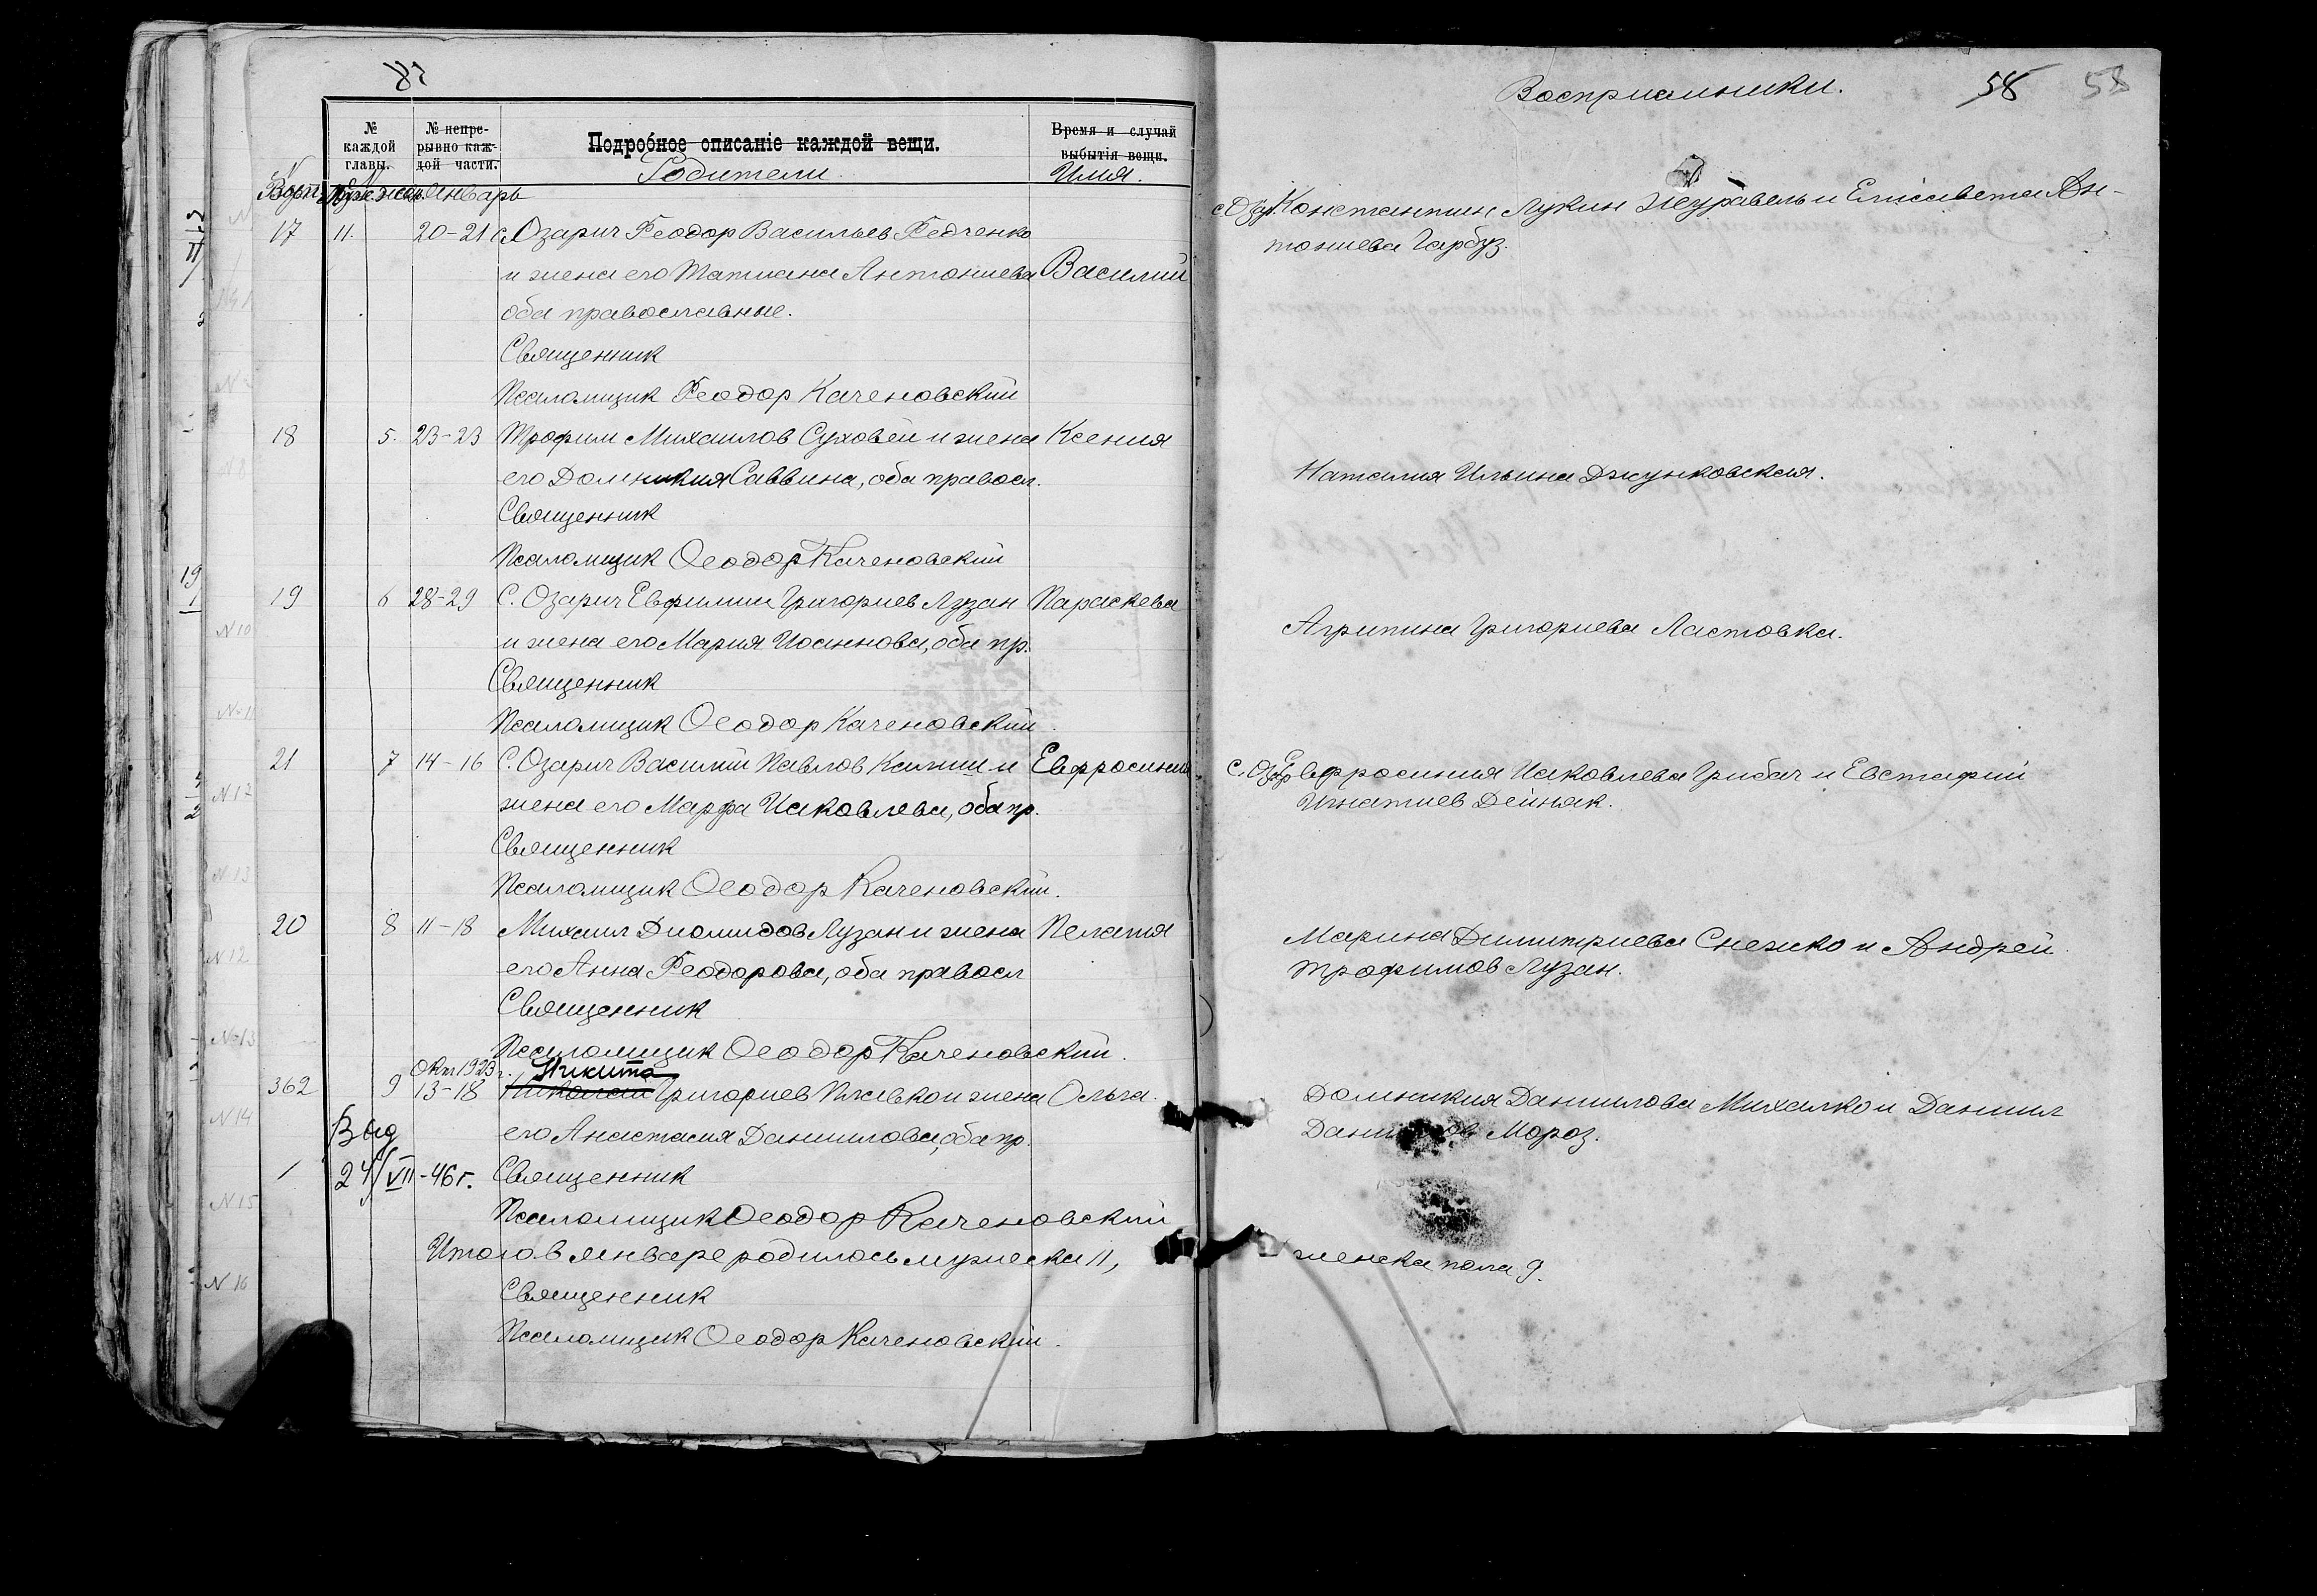 № каждой главы.
№ непрерывно каждой части.
Подробное описаніе каждой вещи.
Время и случай выбытія вещи.
Родители.
Имя.
Январь
17 11. 20-21 с. Озарич Феодор Васильев Федченко
и жена его Татиана Антониева Василий
оба православные.
Священник
Псаломщик Феодор Каченовский
18 5. 23-23 Трофим Михаилов Суховей и жена Ксения
его Домникия Саввина, оба правосл.
Священник
Псаломщик Ѳеодор Каченовский
19 6 28-29 С. Озарич Евфимий Григориев Лузан Параскева
и жена его Мария Иоаннова, оба пр.
Священник
Псаломщик Ѳеодор Каченовский.
21 7 14-16 С. Озарич Василий Павлов и Евфросиния
жена его Марфа Иаковлева, оба пр.
Священник
Псаломщик Ѳеодор Каченовский.
20 8 11-18 Михаил Диомидов Лузан и жена Пелагия
его Анна Феодорова, оба правосл
Священник
Псаломщик Ѳеодор Каченовский.
Окт 1923 г. Никита
362 9 13-18 Николай Григориев и жена Ольга.
Выд его Анастасия Даниилова, оба пр.
1 24/VII-46 г. Священник
Псаломщик Ѳеодор Каченовский
Итого в январе родилось мужеска 11,
Священник
Псаломщик Ѳеодор Каченовский.
Восприемники. 58 58
с. Озар. Константин Лукин Журавель и Елисавета Ан-
тониева Гарбуз.
Наталия Ильина Джунковская.
Агрипина Григориева Ластовка.
с. Озар Евфросиния Иаковлева Грибач и Евстафий
Игнатиев Дейнак.
Марина Димитриева Снежко и Андрей
Трофимов Лузан.
Домникия Даниилова Михалко и Даниил
Даниилов Мороз.
женска пола 9.
N 10
N 11
N 12
N 13
N 12
N 13
N 14
N 15
N 16